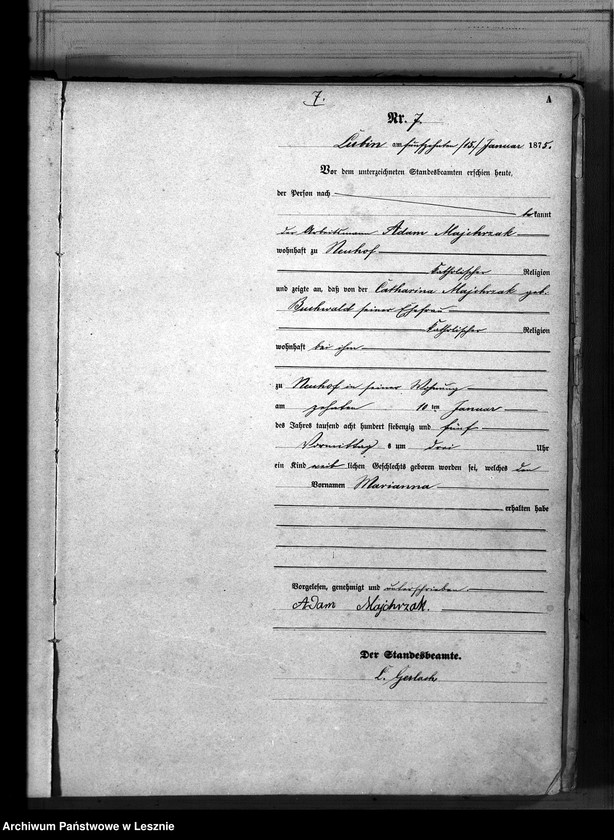 7.
A
Nr. 7.
Lubin am fünfzehnten /15./ Januar 1875.
Vor dem unterzeichneten Standesbeamten erschien heute,
der Person nach
kannt
der Arbeitsmann Adam Majchrzak
wohnhaft zu Neuhof
Catholischer Religion
und zeigte an, daß von der Catharina Majchrzak geb.
Buchwald seiner Ehefrau
Catholischer Religion
wohnhaft bei ihm
zu Neuhof in seiner Wohnung
am zehnten 10 ten Januar
des Jahres tausend acht hundert siebenzig und fünf
Vormittag s um drei Uhr
ein Kind weiblichen Geschlechts geboren worden sei, welches den
Vornamen Marianna
erhalten habe
Vorgelesen, genehmigt und unterschrieben
Adam Majchrzak.
Der Standesbeamte.
L. Gerlach
Archiwum Państwowe w Lesznie